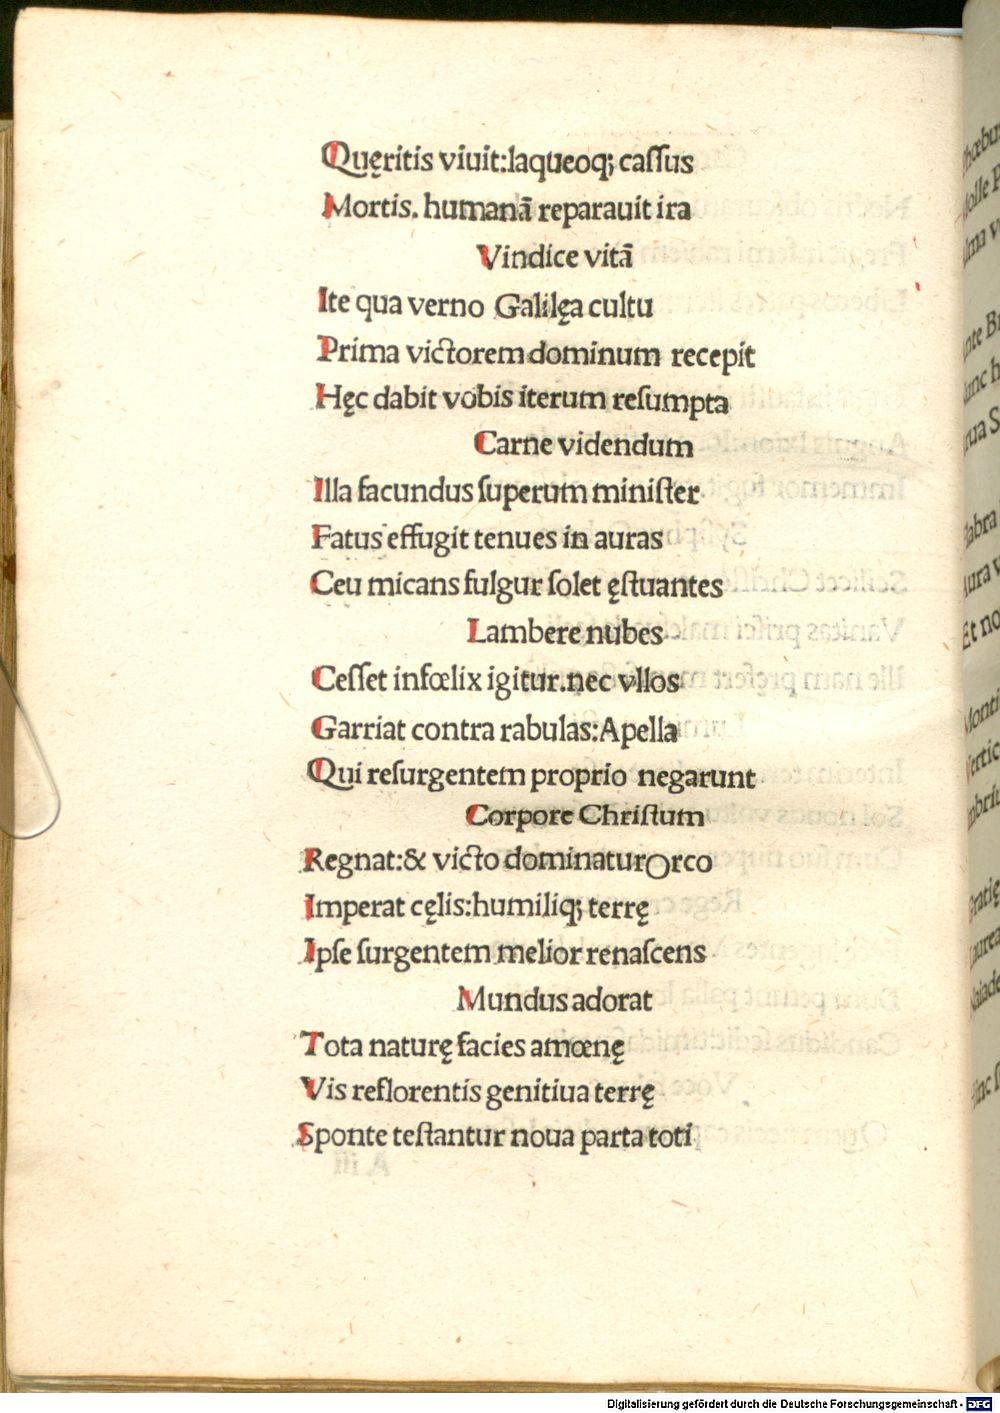 Quęritis viuit:laqueoq; caſſus
Mortis. humanā reparauit ira
Vindice vitā
Ite qua verno Galilęa cultu
Prima victorem dominum recepit
Hęc dabit vobis iterum reſumpta
Carne videndum
Illa facundus ſuperum miniſter
Fatus effugit tenues in auras
Ceu micans fulgur ſolet ęſtuantes
Lambere nubes
Ceſſet infœlix igitur.nec vllos
Garriat contra rabulas:Apella
Qui reſurgentem proprio negarunt
Corpore Chriſtum
Regnat:& victo dominatur Orco
Imperat cęlis:humiliq; terrę
Ipſe ſurgentem melior renaſcens
Mundus adorat
Tota naturę facies amœnę
Vis reflorentis genitiua terrę
Sponte teſtantur noua parta toti
Digitalisierung gefördert durch die Deutsche Forschungsgemeinschaft - DFG